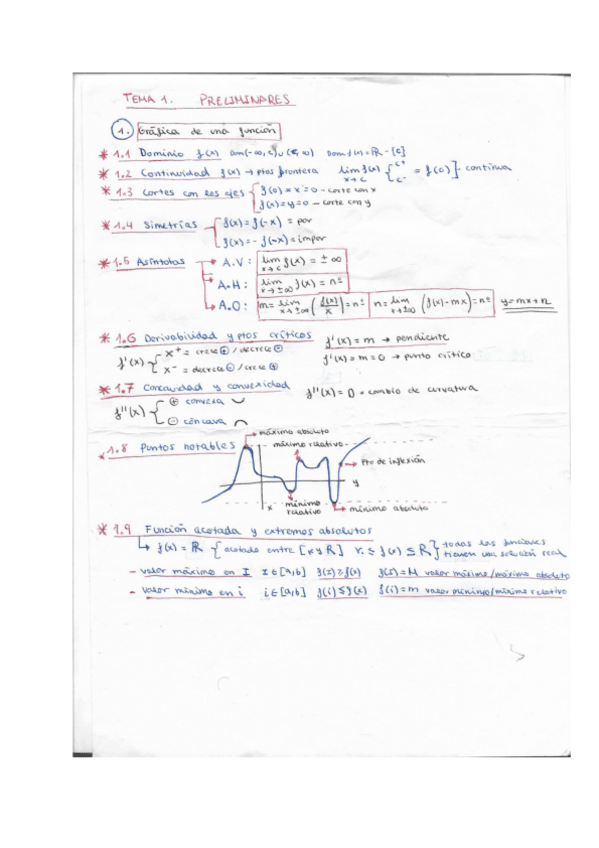 TEMA 1. PRELIMINARES
1. Gráfica de una función
* 1.1 Dominio f(x) (-∞, c) ∪ (c, ∞) Dom f(x) = ℝ - {c}
* 1.2 Continuidad f(x) → ptos frontera lim x→c f(x) { c⁺ c⁻ = f(c) } - continua
* 1.3 Cortes con los ejes { f(0) ∝ x=0 - corte con x
f(x) = y = 0 - corte con y
* 1.4 Simetrías { f(x) = f(-x) = par
f(x) = - f(-x) = impar
* 1.5 Asíntotas → A.V: lim x→c f(x) = ± ∞
→ A.H: lim x→±∞ f(x) = nº
→ A.O: m = lim x→±∞ (f(x)/x) = nº n = lim x→±∞ (f(x) - mx) = nº y = mx + n
* 1.6 Derivabilidad y ptos críticos f'(x) = m → pendiente
f'(x) { x⁺ = crece ⊕ / decrece ⊖ f'(x) = m = 0 → punto crítico
x⁻ = decrece ⊖ / crece ⊕
* 1.7 Concavidad y convexidad f''(x) = 0 = cambio de curvatura
f''(x) { ⊕ convexa ⌣
⊖ cóncava ⌢
* 1.8 Puntos notables
máximo absoluto
máximo relativo
Pto de inflexión
y
x
mínimo relativo
mínimo absoluto
* 1.9 Función acotada y extremos absolutos
↳ f(x) = ℝ { acotado entre [ y R] ≤ f(x) ≤ R } todas las funciones
tienen un solución real
- valor máximo en I I ∈ [a,b] f(I) ≥ f(x) f(I) = M valor máximo/máximo absoluto
- valor mínimo en i i ∈ [a,b] f(i) ≤ f(x) f(i) = m valor mínimo/mínimo relativo